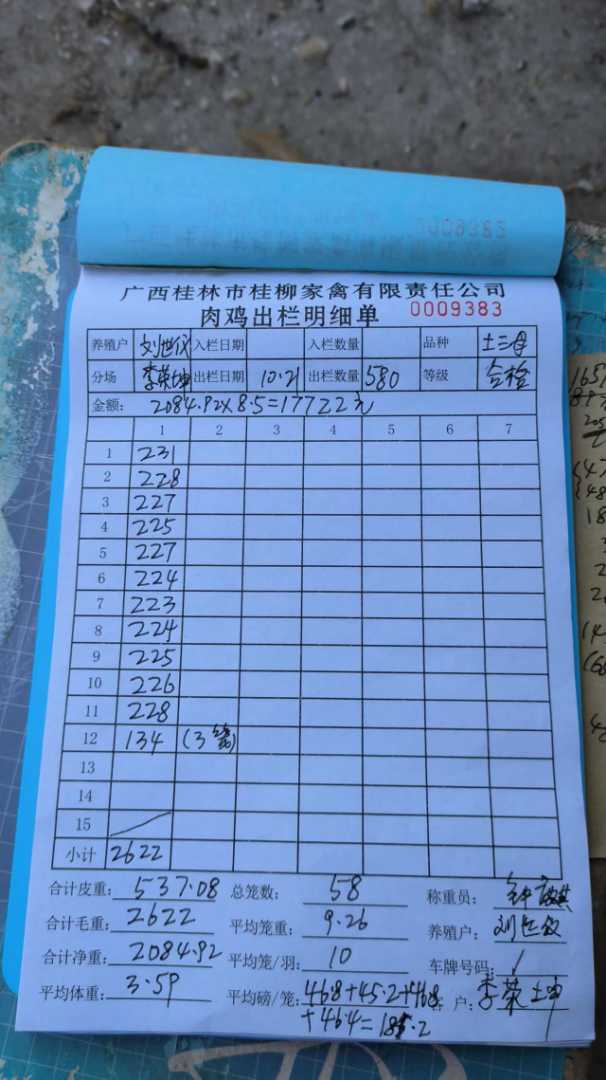 0009383
广西桂林市桂柳家禽有限责任公司
肉鸡出栏明细单 0009383
养殖户 刘世仪 入栏日期 入栏数量 品种 土三号
分场 李荣坤 出栏日期 10.21 出栏数量 580 等级 合检
金额: 2084.92×8.5=17722元
1 2 3 4 5 6 7
1 231
2 228
3 227
4 225
5 227
6 224
7 223
8 224
9 225
10 226
11 228
12 134 (3笼)
13
14
15
小计 2622
合计皮重: 537.08 总笼数: 58 称重员:
合计毛重: 2622 平均笼重: 9.26 养殖户: 刘世仪
合计净重: 2084.92 平均笼/羽: 10 车牌号码: /
平均体重: 3.59 平均磅/笼: 46.8+45.2+46.8 客户: 李荣坤
+46.4=185.2